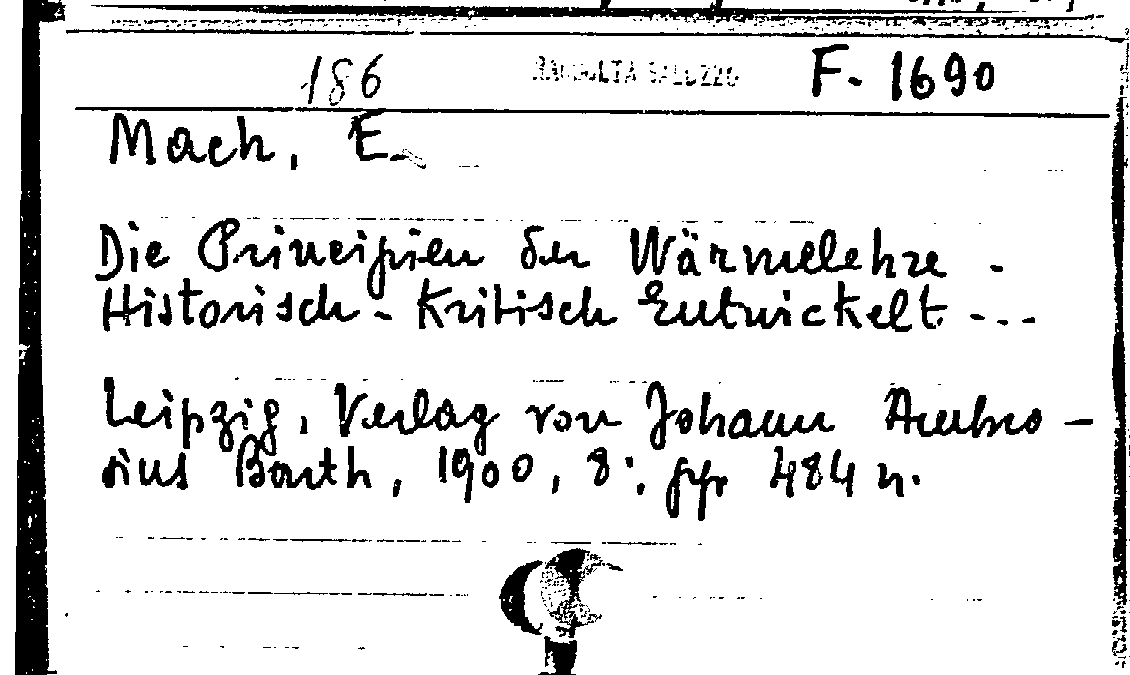 186 RACCOLTA SALUZZO F. 1690
Mach, E.
Die Principien der Wärmelehre -
Historisch - Kritisch Entwickelt ---
Leipzig, Verlag von Johann Ambro -
sius Barth, 1900, 8°: pp. 484 n.